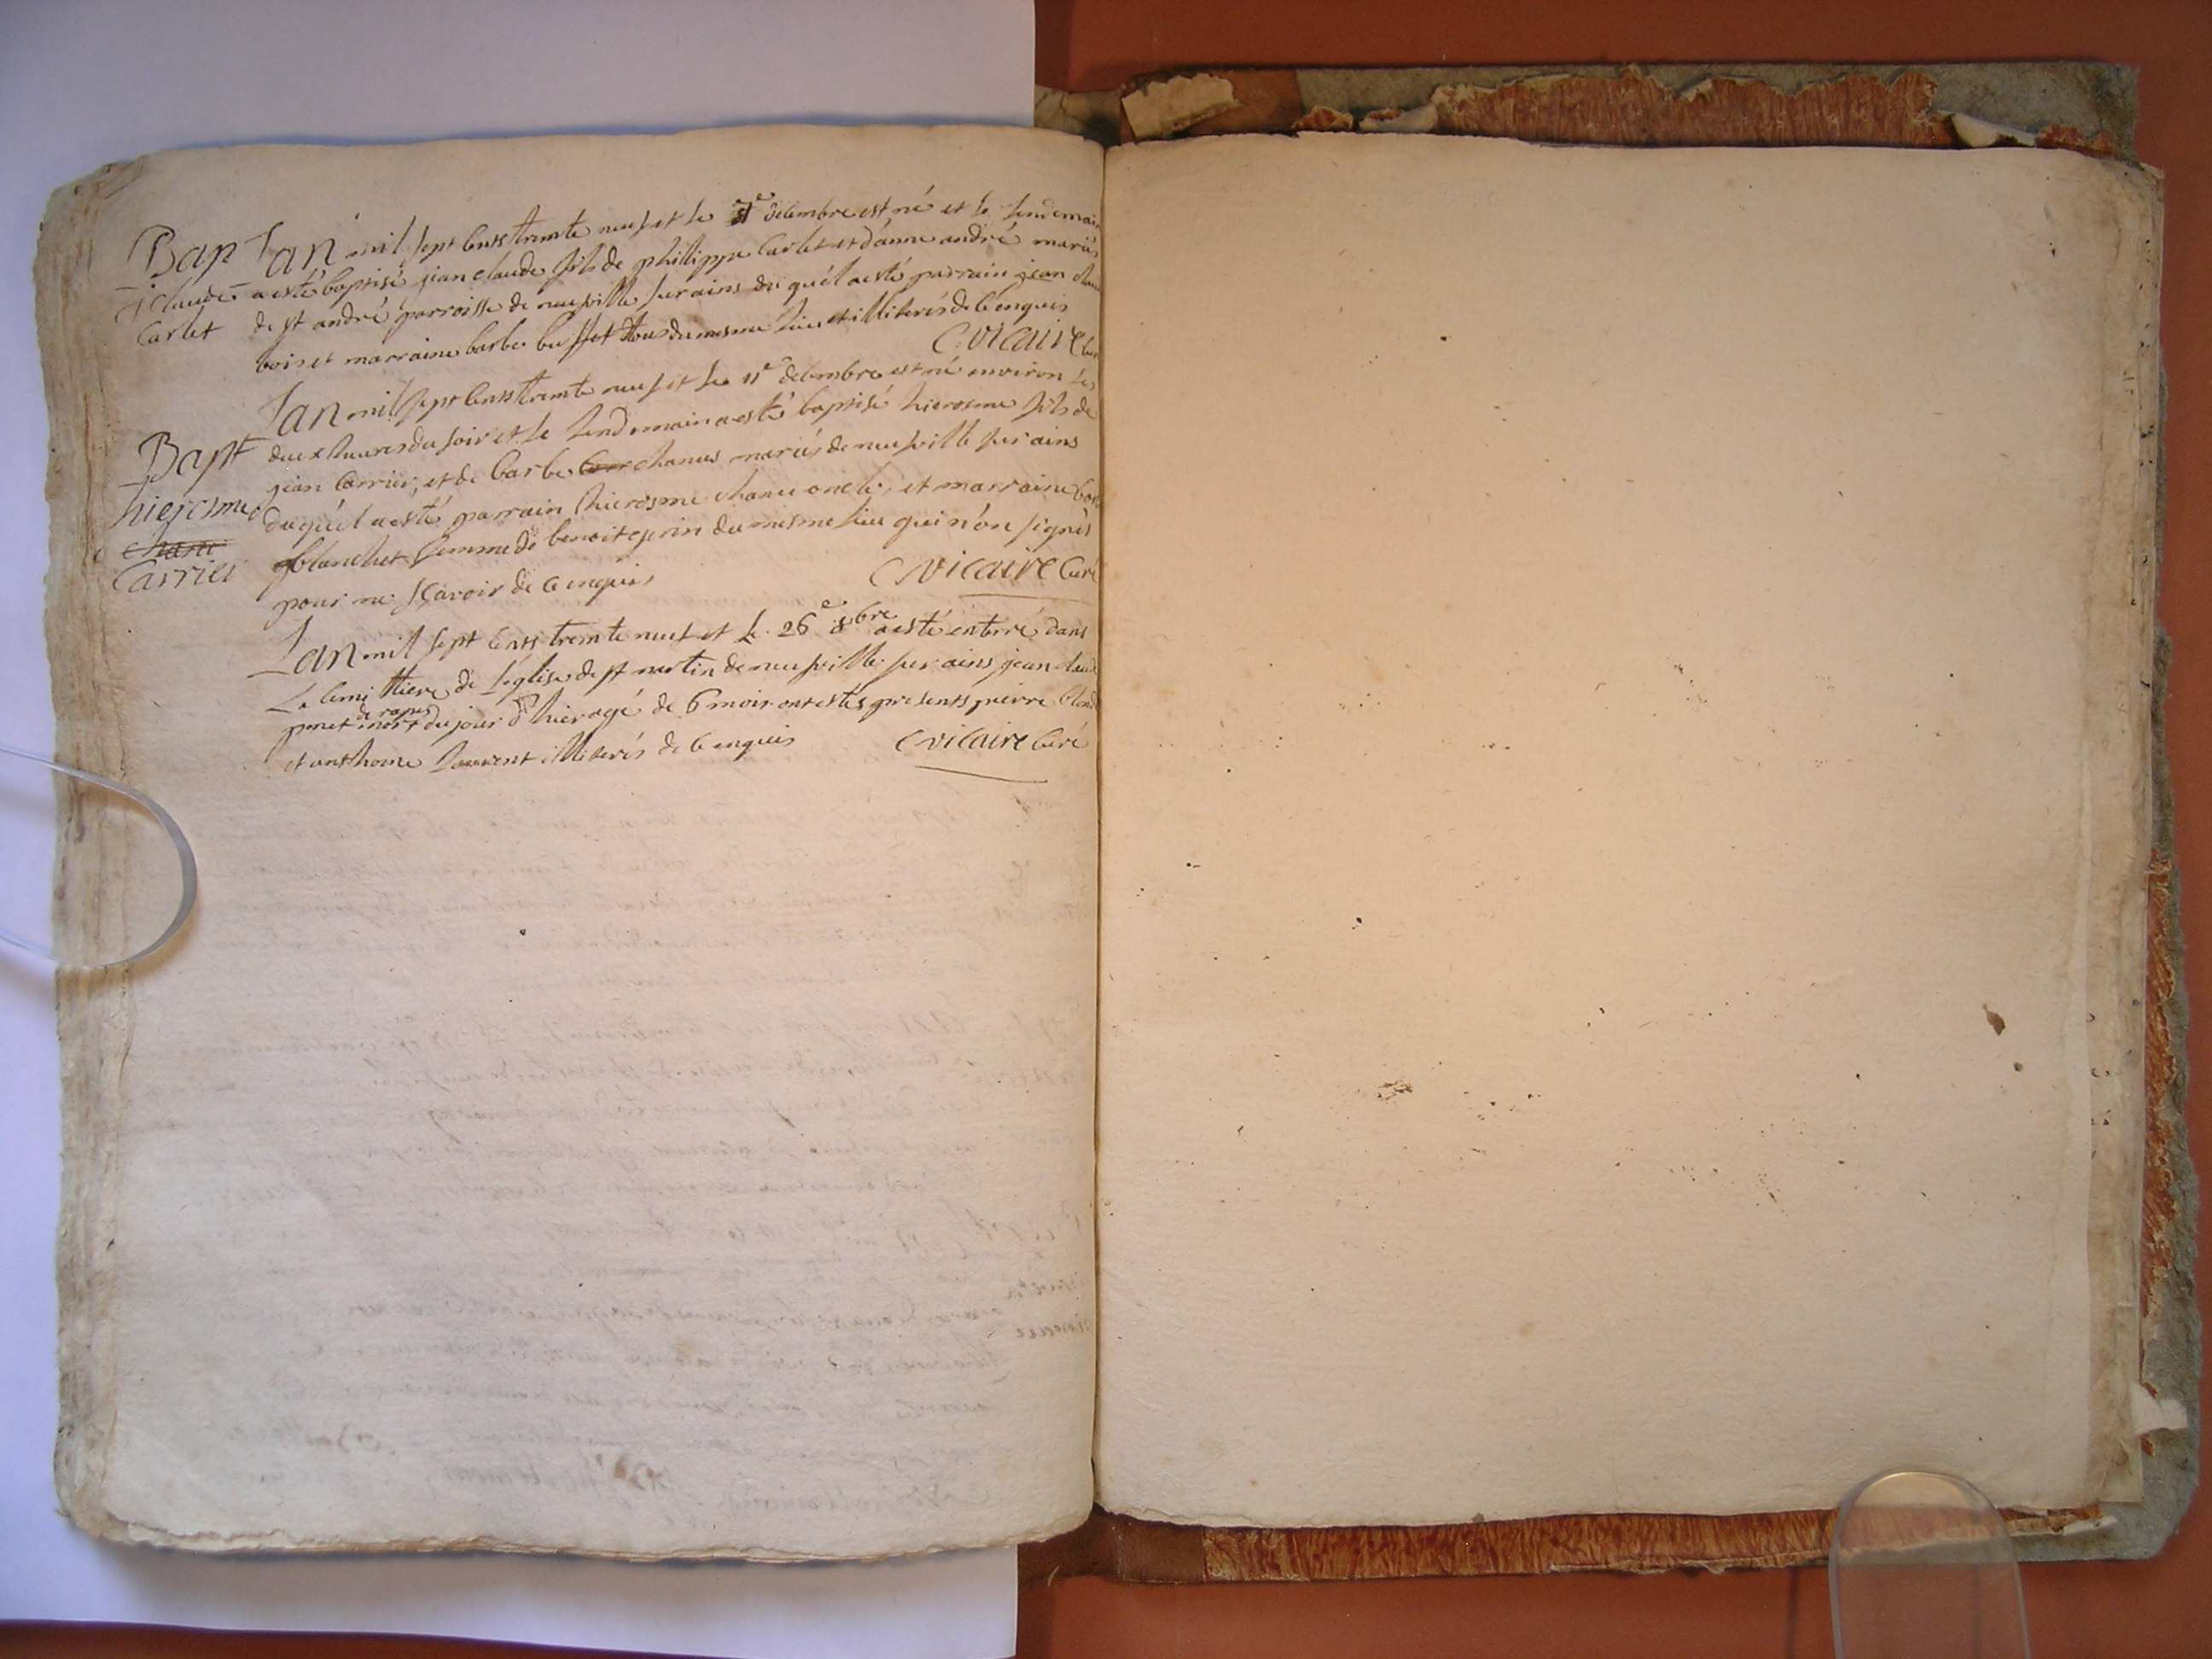 Bap
j claude
Carlet
Lan mil sept cents trente neuf et le decembre est né et le lendemain
a esté baptisé jean claude fils de philippe Carlet et d'anne andré mariés
de st andré parroisse de neufville sur ains duquél a esté parrain jean
bois et marraine barbe buffet tous du mesme lieu et illiterés de ce enquis
C vicaire
Bapt
hierosme
chane
Carrier
Lan mil sept cents trente neuf et le 11e decembre est né environ les
deux heures du soir et le lendemain a esté baptisé hierosme fils de
jean Carrier, et de barbe chanus mariés de neufville sur ains
duquél a esté parrain hierosme chanu oncle, et marraine
blanchet femme de benoit du mesme lieu qui n'on signés
pour ne sçavoir de ce enquis
C vicaire Curé
Lan mil sept cents trente neuf et le 26e 8bre a esté enterré dans
Le cemittiere de l'église de st martin de neufville sur ains jean
ponet de rapes mort du jour d'hier agé de 6 mois ont estés presents pierre
et anthoine Laurent illiterés de ce enquis
C vicaire Curé